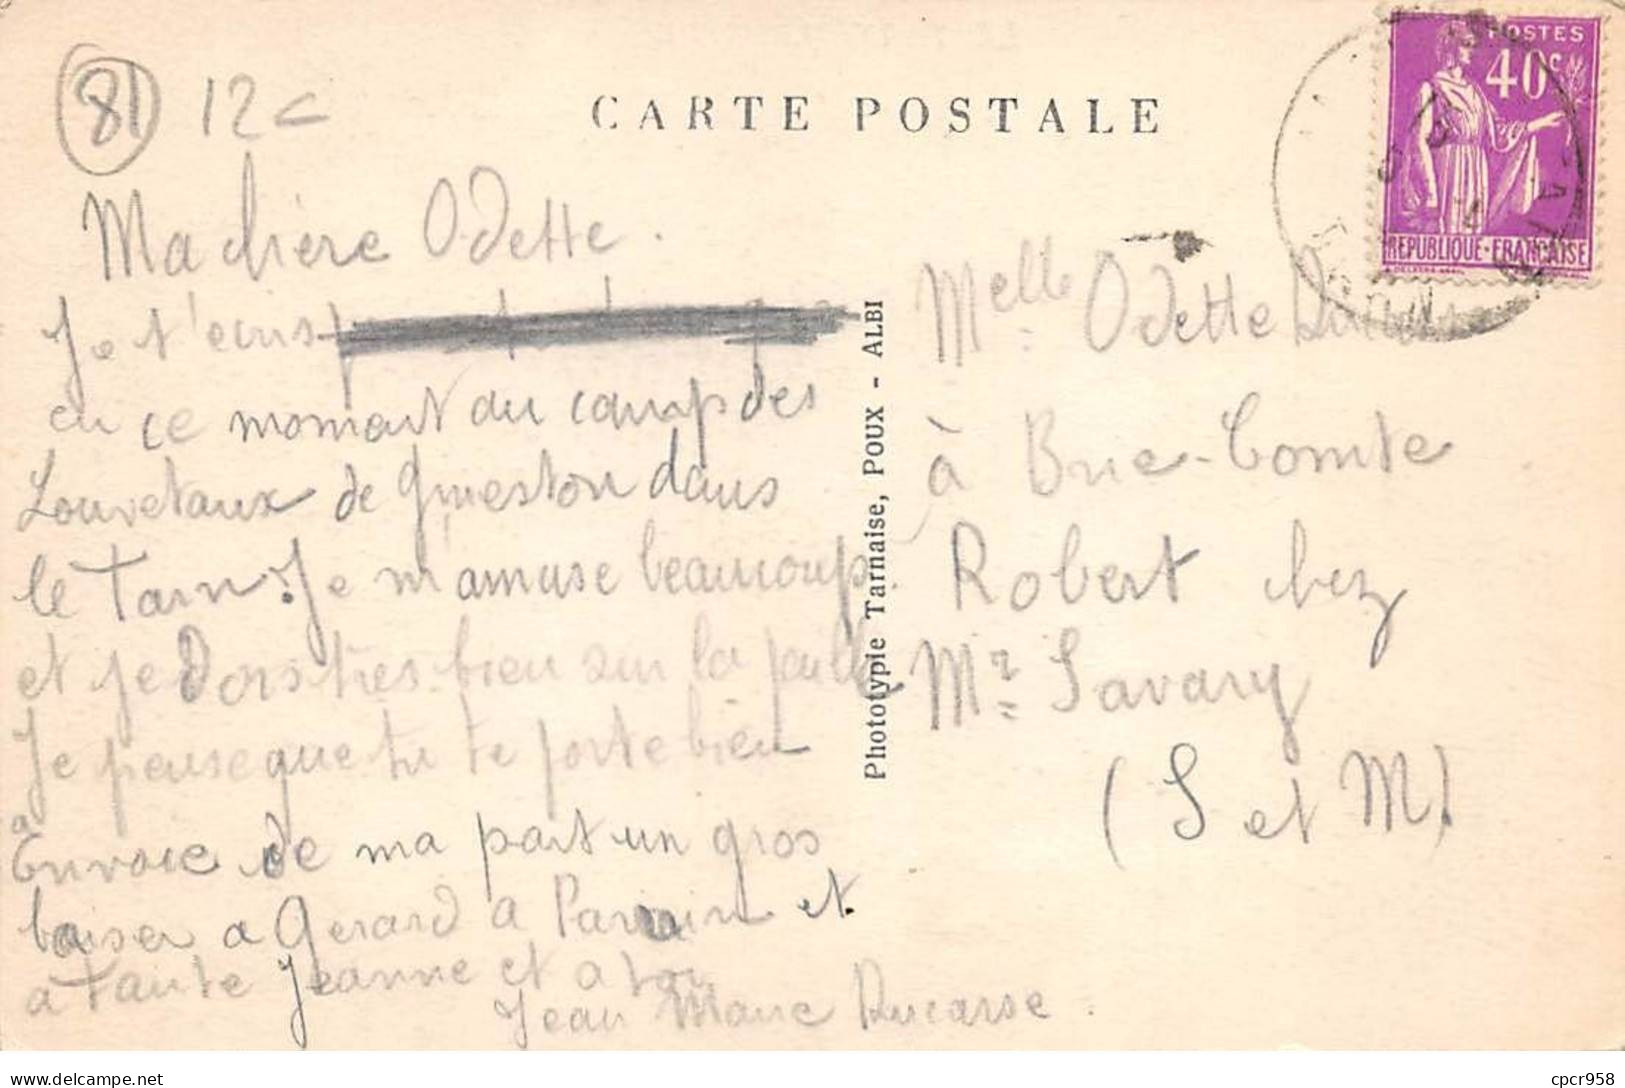 81 12
CARTE POSTALE
POSTES
40c
REPUBLIQUE FRANCAISE
Ma chère Odette.
Je t'ecris
en ce moment du camp des
Louvetaux de dans
le Tarn. Je m'amuse beaucoup.
et je dors très bien sur la paille
Je pense que tu te porte bien
Envoie de ma part un gros
baiser a Gerard a Parrain et
a Tante Jeanne et a toi.
Jean Marc Ducasse.
Phototypie Tarnaise, POUX - ALBI
Melle Odette
à Brie-Comte
Robert chez
Mr Savary
(S et M)
delcampe.net
cpcr958